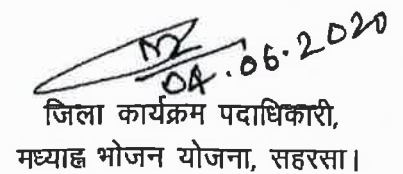 04.06.2020
जिला कार्यक्रम पदाधिकारी,
मध्याह्न भोजन योजना, सहरसा।